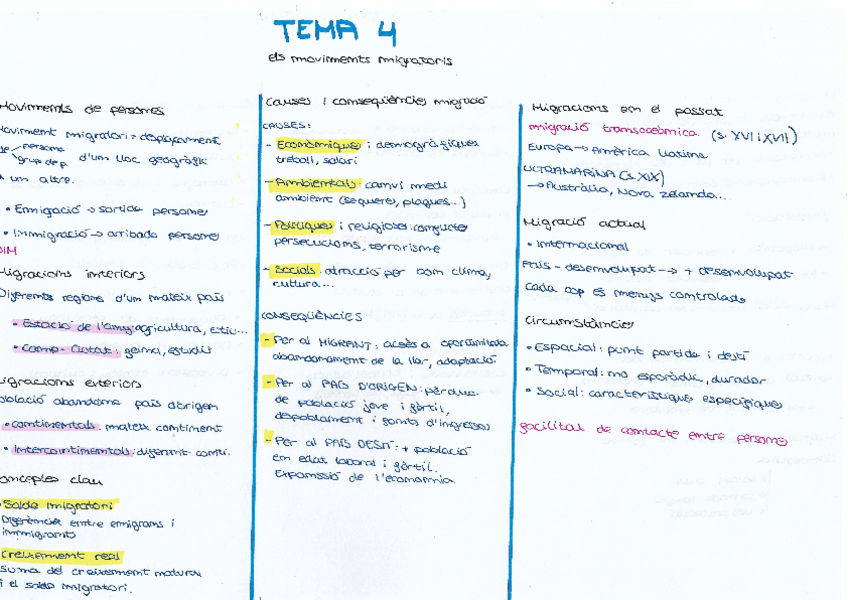 TEMA 4
els moviments migratoris
Moviments de persones
Moviment migratori = desplaçament
de persona
grup de p. d'un lloc geogràfic
a un altre.
• Emigració → sortida persones
• Immigració → arribada persones
DIM
Migracions interiors
Diferents regions d'un mateix país
• Estació de l'any: agricultura, estiu...
• Camp-Ciutat: feina, estudis
Migracions exteriors
Població abandona país d'origen
• continentals: mateix continent
• Intercontinentals: diferent conti.
Conceptes clau
Saldo migratori
Diferència entre emigrants i
immigrants
Creixement real
suma del creixement natural
i el saldo migratori.
Causes i conseqüències migració
CAUSES:
- Econòmiques i demogràfiques
treball, salari
- Ambientals: canvi medi
ambient (sequeres, plagues...)
- Polítiques i religioses: conflictes
persecucions, terrorisme
- Socials: atracció per bon clima,
cultura...
CONSEQÜÈNCIES
- Per al MIGRANT: accés a oportunitats
abandonament de la llar, adaptació
- Per al PAÍS D'ORIGEN: pèrdua
de població jove i fèrtil,
despoblament i fonts d'ingressos
- Per al PAÍS DESTÍ: + població
en edat laboral i fèrtil.
Expanssió de l'economia
Migracions en el passat
migració transoceànica (s. XVI i XVII)
Europa → Amèrica Llatina
ULTRAMARINA (s. XIX)
→ Austràlia, Nova Zelanda...
Migració actual
• Internacional
País - desenvolupat → + desenvolupat
Cada cop és menys controlada
Circumstàncies
• Espacial: punt partida i destí
• Temporal: no esporàdic, durador
• Social: característiques específiques
facilitat de contacte entre persones